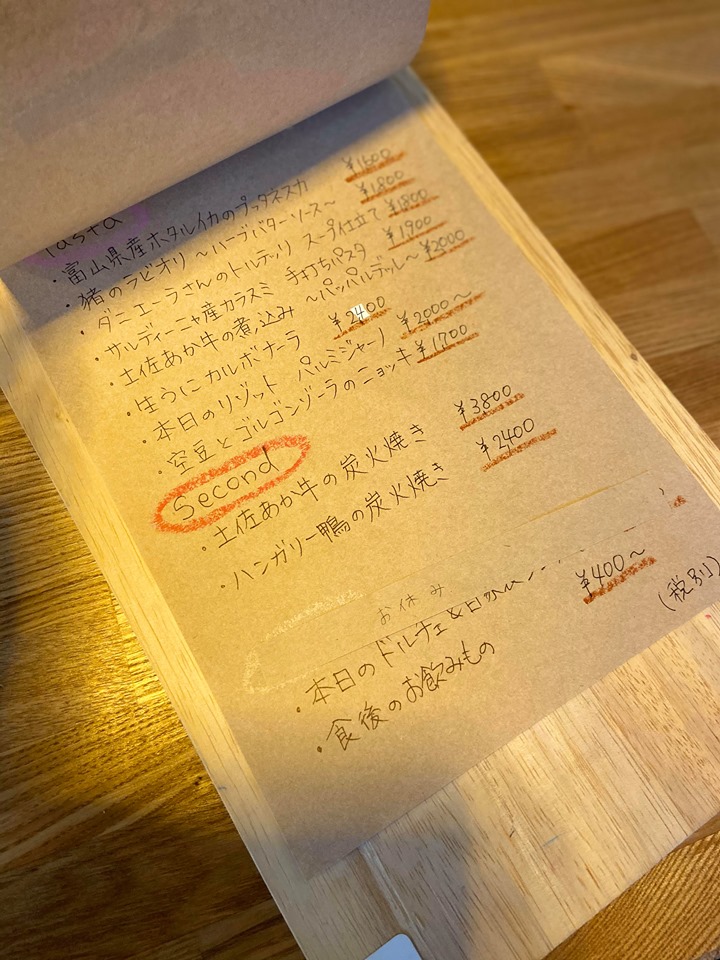 Pasta
・富山県産ホタルイカのプッタネスカ ¥1600
・猪のラビオリ 〜ハーブバターソース〜 ¥1800
・ダニエーラさんのトルテッリ スープ仕立て ¥1800
・サルディーニャ産カラスミ 手打ちパスタ ¥1900
・土佐あか牛の煮込み 〜パッパルデッレ〜 ¥2000
・生うにカルボナーラ ¥2400
・本日のリゾット パルミジャーノ ¥2000〜
・空豆とゴルゴンゾーラのニョッキ ¥1700
Second
・土佐あか牛の炭火焼き ¥3800
・ハンガリー鴨の炭火焼き ¥2400
お休み
・本日のドルチェ &
・食後のお飲みもの ¥400〜
(税別)